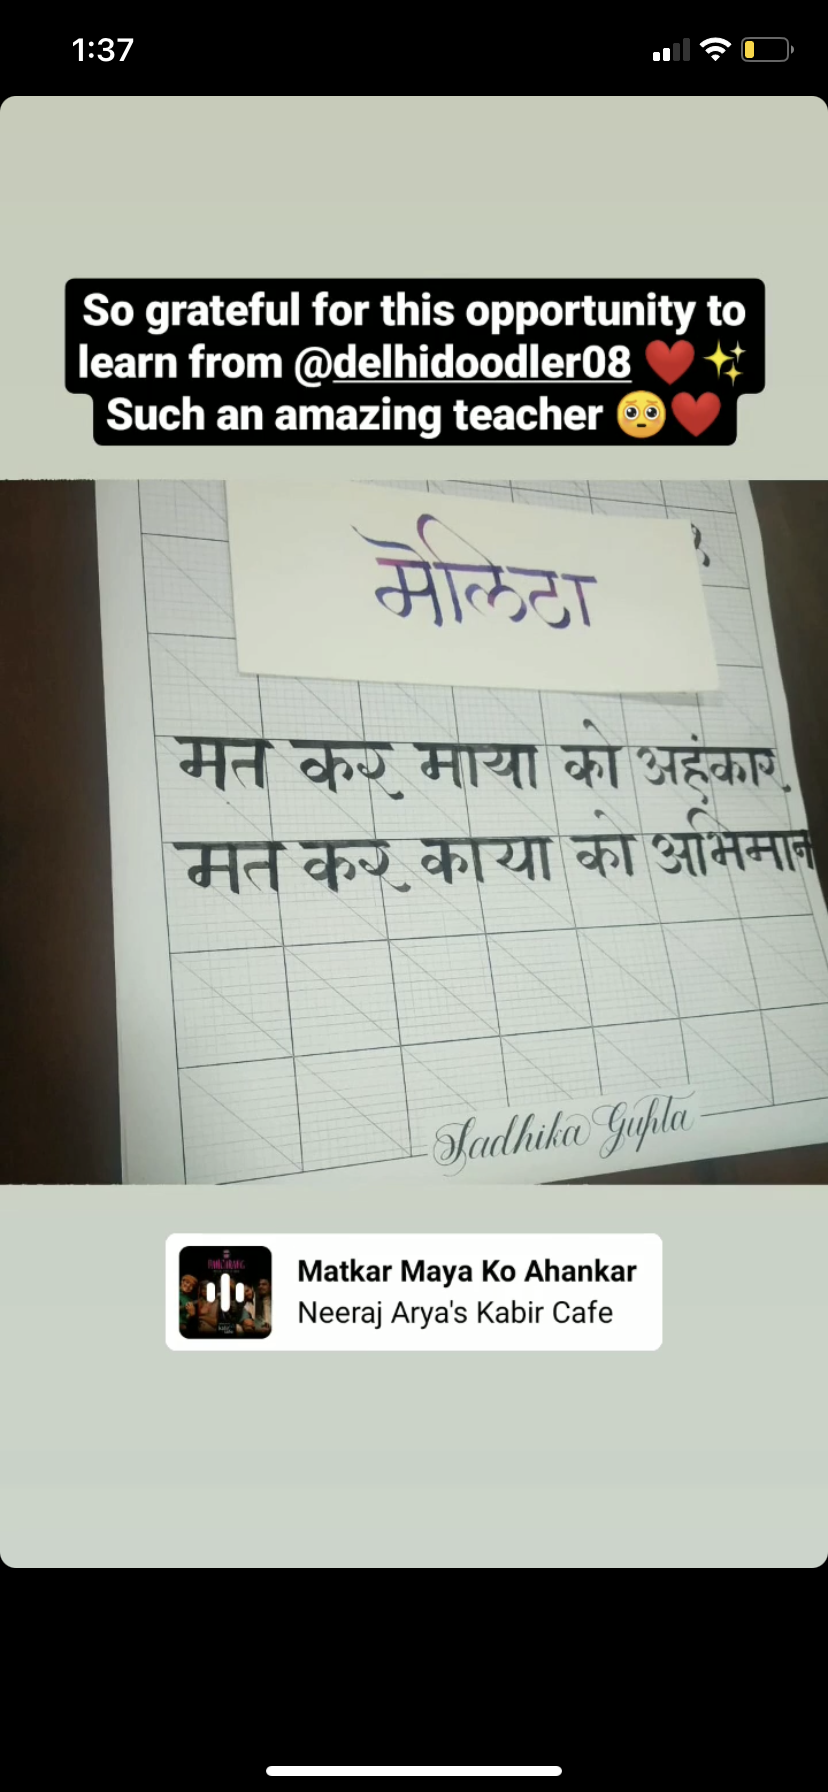 1:37
So grateful for this opportunity to
learn from @delhidoodler08 ❤️✨
Such an amazing teacher 🥺❤️
मेलिटा
मत कर माया को अहंकार
मत कर काया को अभिमान
Sadhika Gupta
Matkar Maya Ko Ahankar
Neeraj Arya's Kabir Cafe